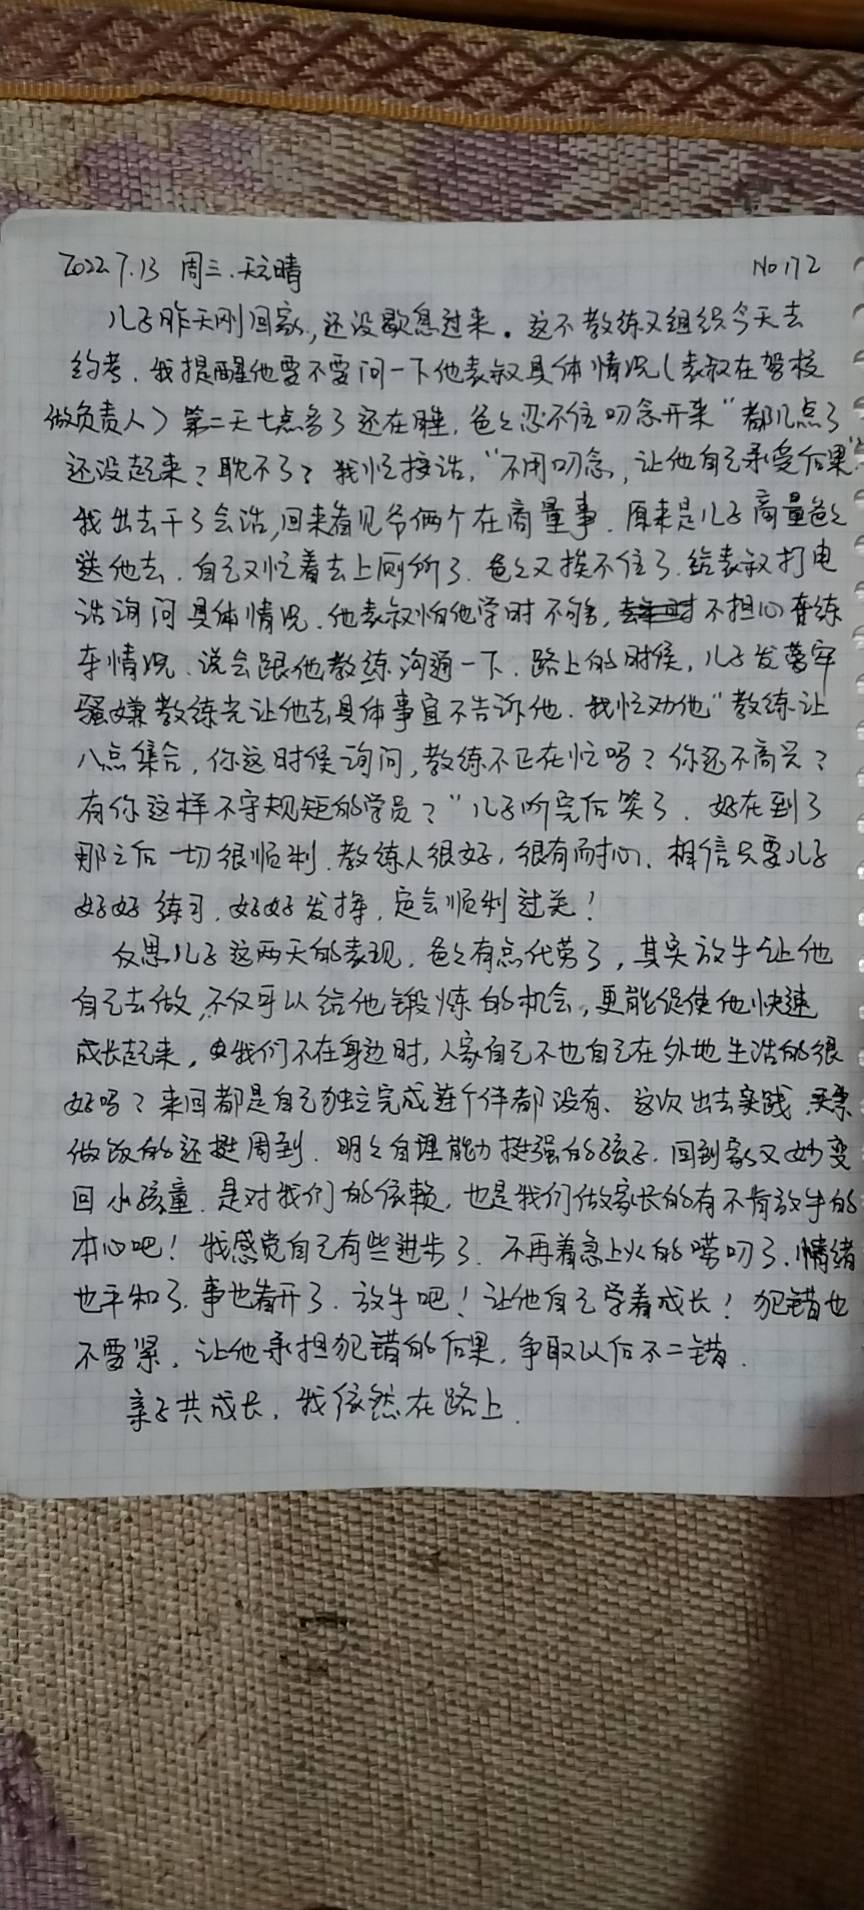 2022.7.13 周三.天气晴 No172
儿子昨天刚回家,还没歇息过来。这不教练又组织今天去
约考.我提醒他要不要问一下他表叔具体情况(表叔在驾校
做负责人)第二天七点多了还在睡.爸爸忍不住叨念开来"都几点了
还没起来?耽不了?我忙接话,"不用叨念,让他自己承受后果"
我出去干了会活,回来看见爷俩个在商量事.原来是儿子商量爸爸
送他去.自己又忙着去上厕所了.爸爸又挨不住了.给表叔打电
话询问具体情况.他表叔怕他学时不够,不担心练
车情况.说会跟他教练沟通一下.路上的时候,儿子发着牢
骚嫌教练光让他去具体事宜不告诉他.我忙劝他"教练让
八点集合,你这时候询问,教练不正在忙吗?你还不高兴?
有你这样不守规矩的学员?"儿子听完后笑了.好在到了
那之后一切很顺利.教练人很好,很有耐心.相信只要儿子
好好练习.好好发挥,定会顺利过关!
反思儿子这两天的表现.爸爸有点代劳了,其实放手让他
自己去做,不仅可以给他锻炼的机会,更能促使他快速
成长起来,我们不在身边时,人家自己不也自己在外地生活的很
好吗?来回都是自己独立完成连个伴都没有、这次出去实践.买菜
做饭的还挺周到.明明自理能力挺强的孩子.回到家又妙变
回小孩童.是对我们的依赖,也是我们做家长的有不肯放手的
本心吧!我感觉自己有些进步了.不再着急上火的唠叨了.情绪
也平和了.事也看开了.放手吧!让他自己学着成长!犯错也
不要紧.让他承担犯错的后果.争取以后不二错.
亲子共成长.我依然在路上.